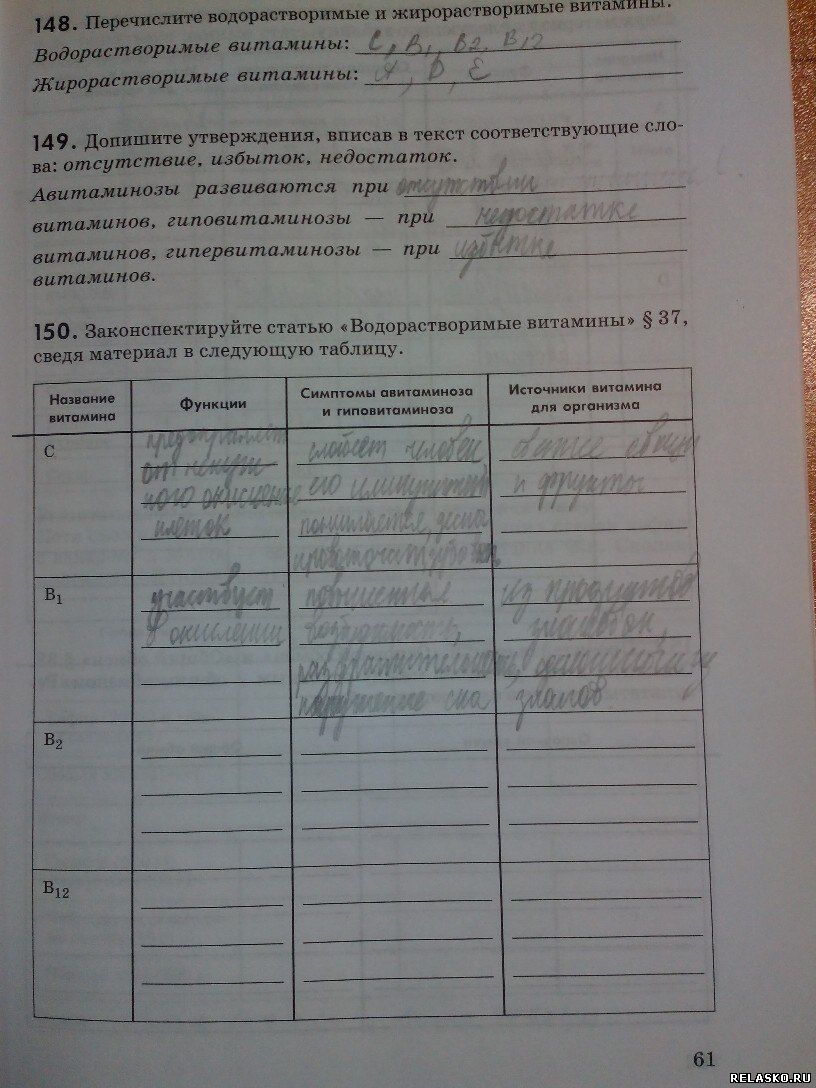 148. Перечислите водорастворимые и жирорастворимые витамины.
Водорастворимые витамины: C, B1, B2, B12
Жирорастворимые витамины: A, D, E
149. Допишите утверждения, вписав в текст соответствующие сло-
ва: отсутствие, избыток, недостаток.
Авитаминозы развиваются при отсутствии
витаминов, гиповитаминозы — при недостатке
витаминов, гипервитаминозы — при избытке
витаминов.
150. Законспектируйте статью «Водорастворимые витамины» § 37,
сведя материал в следующую таблицу.
Название
витамина
Функции
Симптомы авитаминоза
и гиповитаминоза
Источники витамина
для организма
C
от
ного окисления
клеток
слабеет человек
его иммунитет
понижается, десна
кровоточат
свежие овощи
и фрукты
B1
участвует
в окислении
повышенная
нарушение сна
Из продуктов
злаков
B2
B12
61
RELASKO.RU